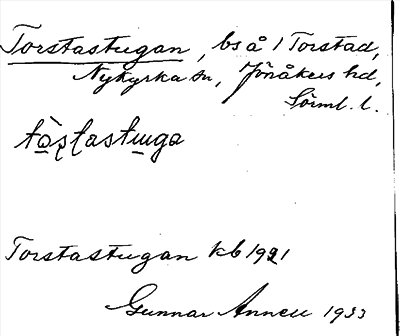 Torstastugan, bs å 1 Torstad,
Nykyrka sn, Jönåkers hd,
Sörml. l.
tà̱ştastu̱ga
Torstastugan kb 1921
Gunnar Annell 1933